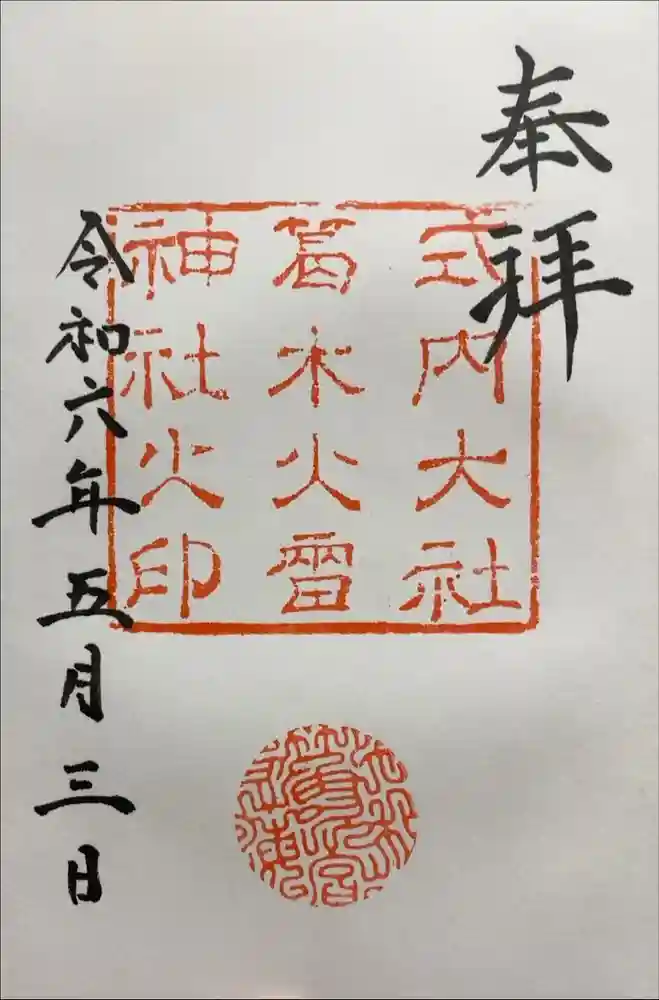 奉拝
式内大社
葛木火雷
神社火印
令和六年五月三日